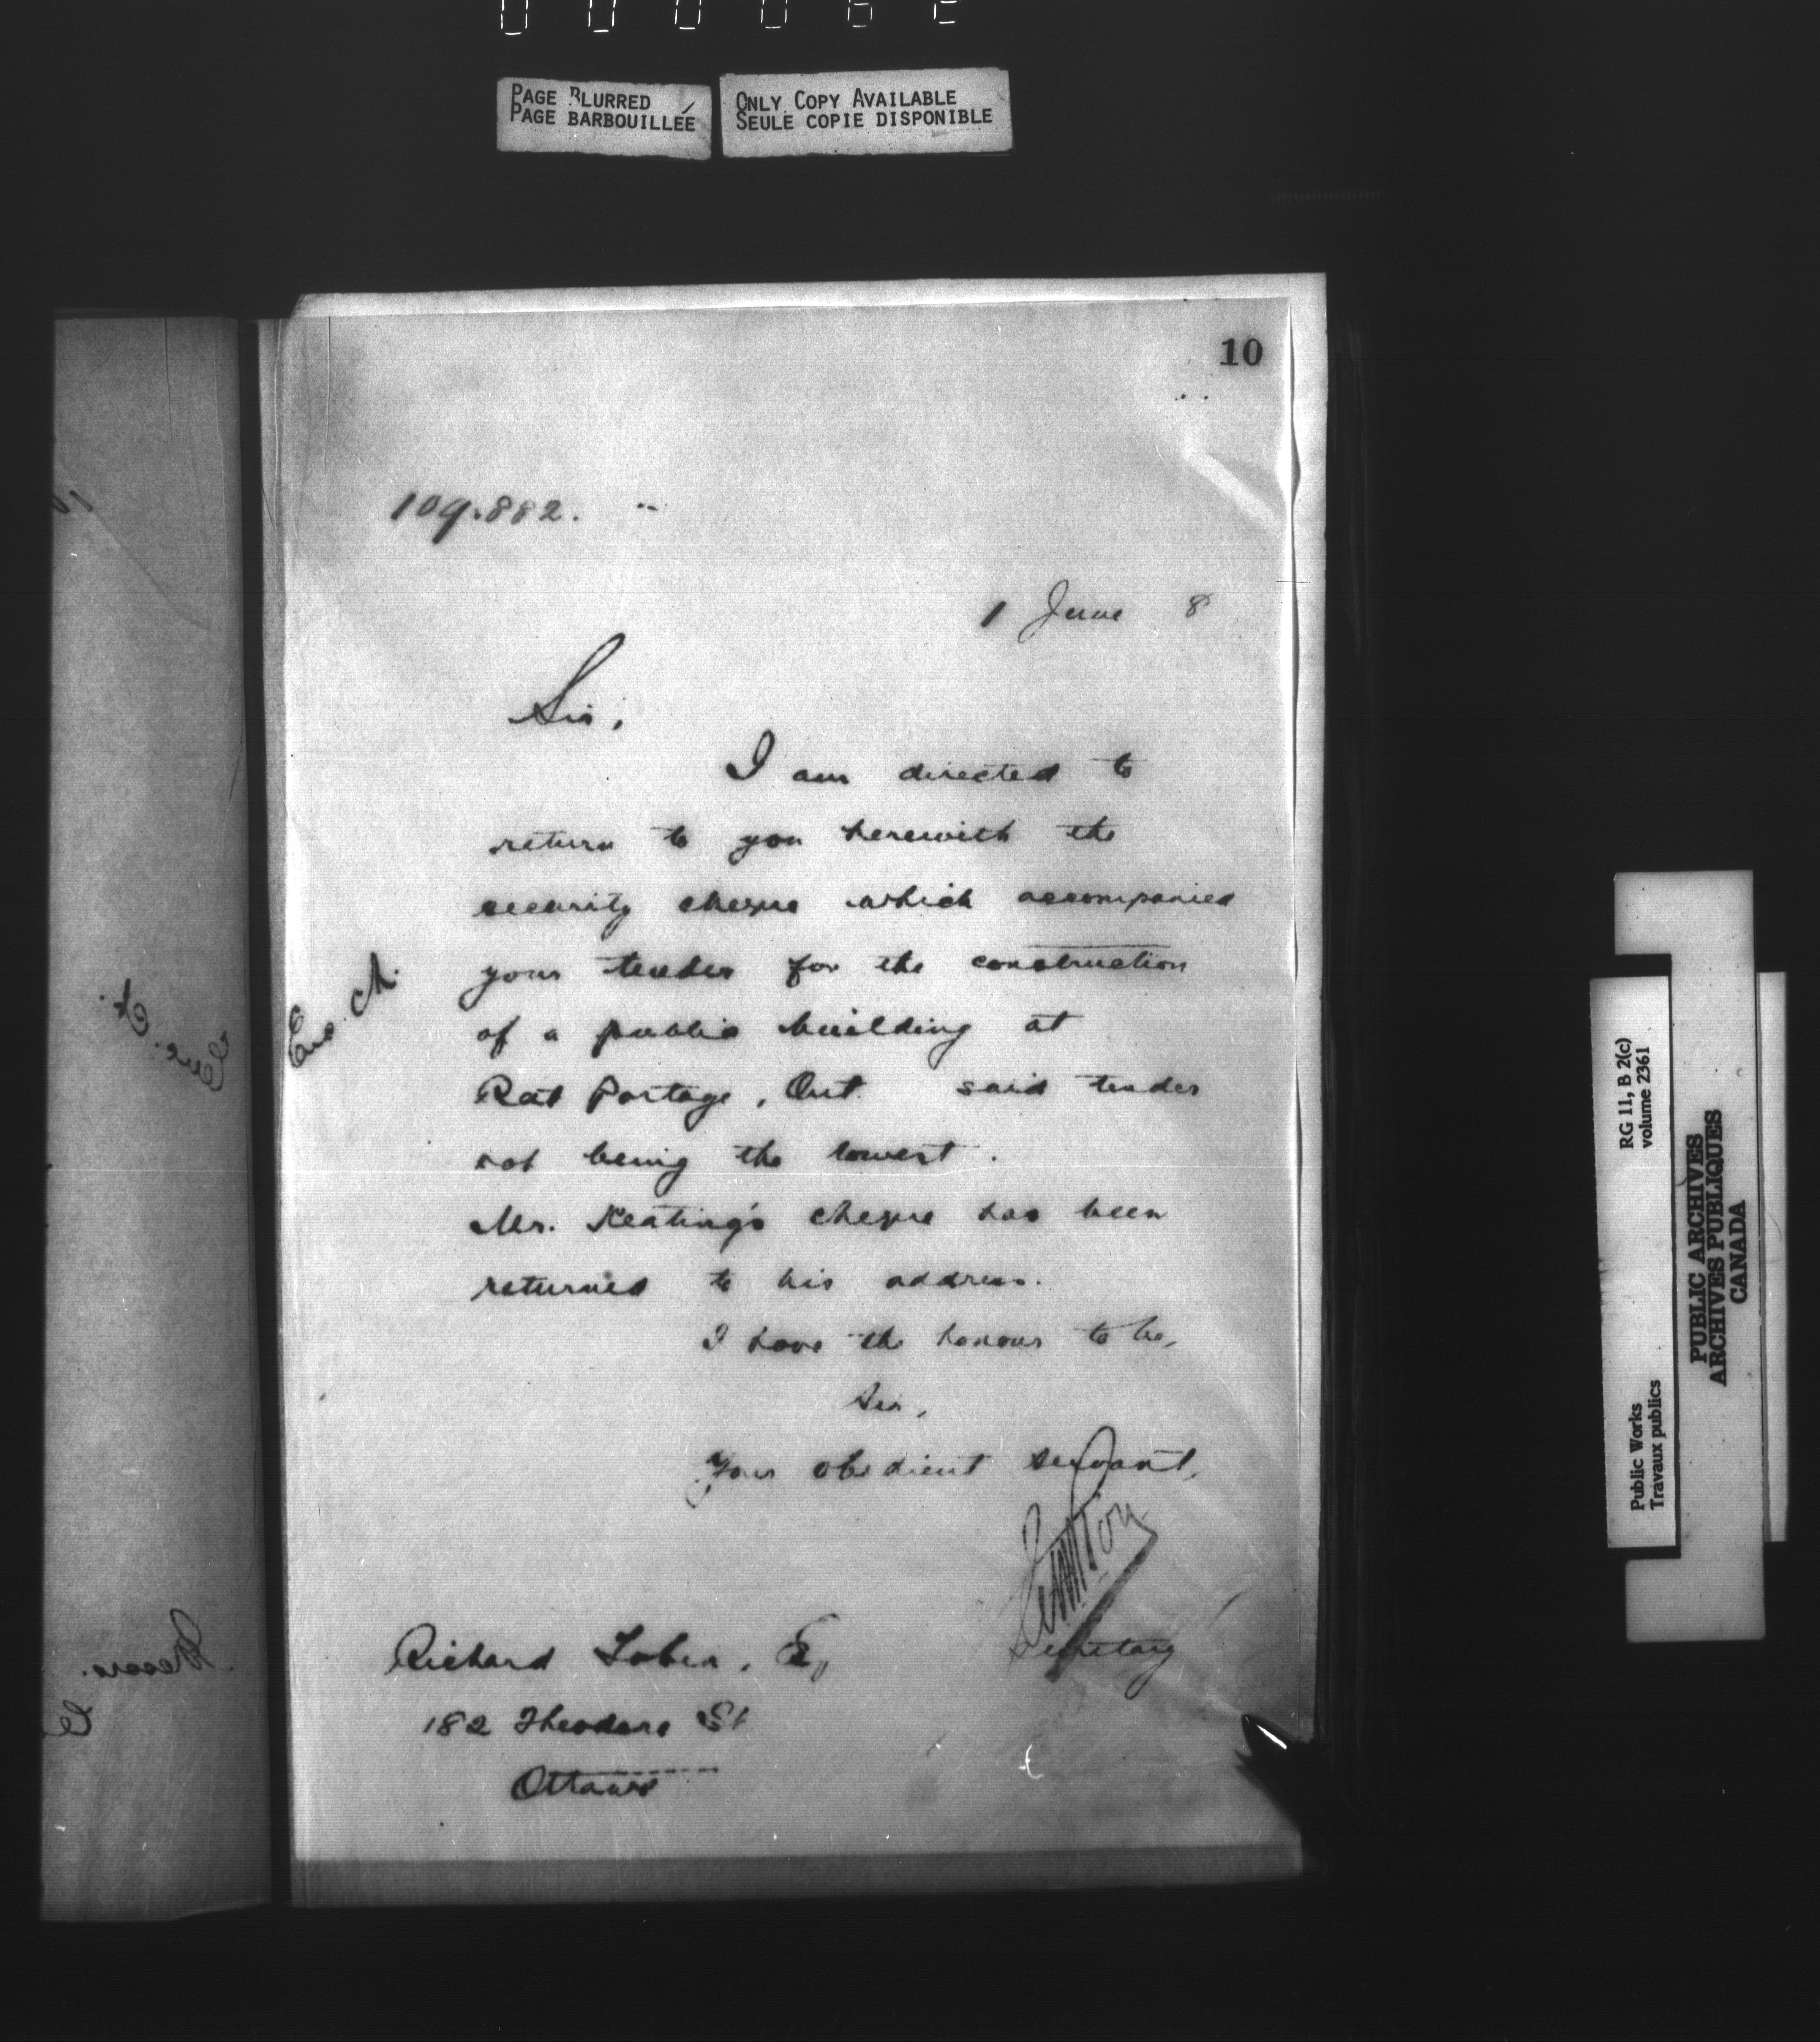 PAGE BLURRED
PAGE BARBOUILLÉE
ONLY COPY AVAILABLE
SEULE COPIE DISPONIBLE
10
109.882.
1 June 8
Sir,
I am directed to
return to you herewith the
security cheque which accompanied
your tender for the construction
of a public building at
Rat Portage, Ont. said tender
not being the lowest.
Mr. Keating's cheque has been
returned to his address.
I have the honour to be,
Sir,
Your obedient servant,
Secretary
Richard Tobin, Es
182 Theodore St
Ottawa
RG 11, B 2(c)
volume 2361
Public Works
Travaux publics
PUBLIC ARCHIVES
ARCHIVES PUBLIQUES
CANADA